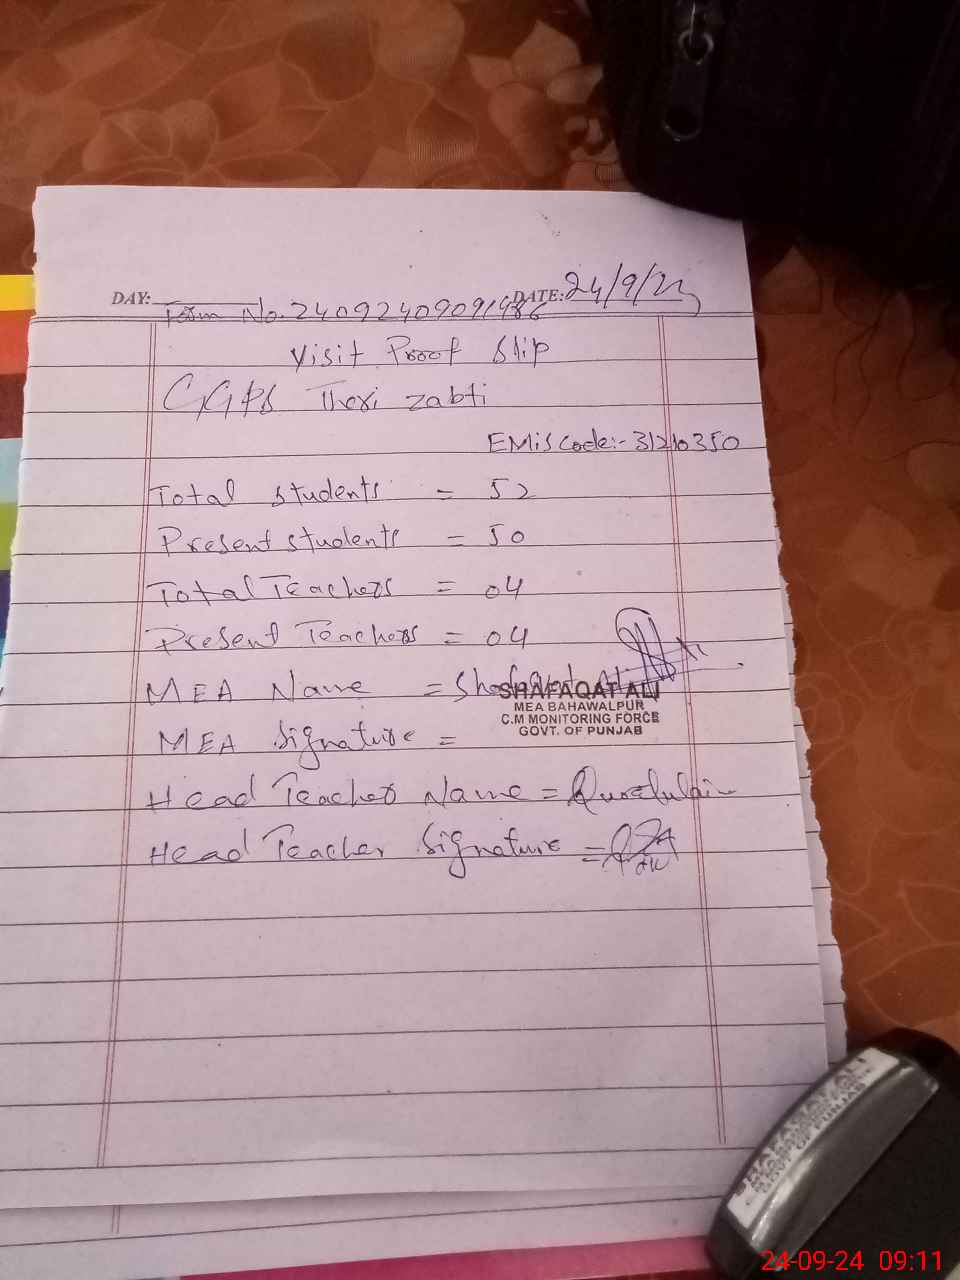 DAY: DATE: 24/9/24
Form No. 24092409091986
Visit Proof Slip
GGPS Theri zabti
EMiS Code:- 31210350
Total students = 52
Present students = 50
Total Teachers = 04
Present Teachers = 04
MEA Name = Shafaqat Ali
SHAFAQAT ALI
MEA BAHAWALPUR
C.M MONITORING FORCE
GOVT. OF PUNJAB
MEA Signature =
Head Teacher Name = Quratulain
Head Teacher Signature =
SHAFAQAT ALI
GOVT OF PUNJAB
24-09-24 09:11